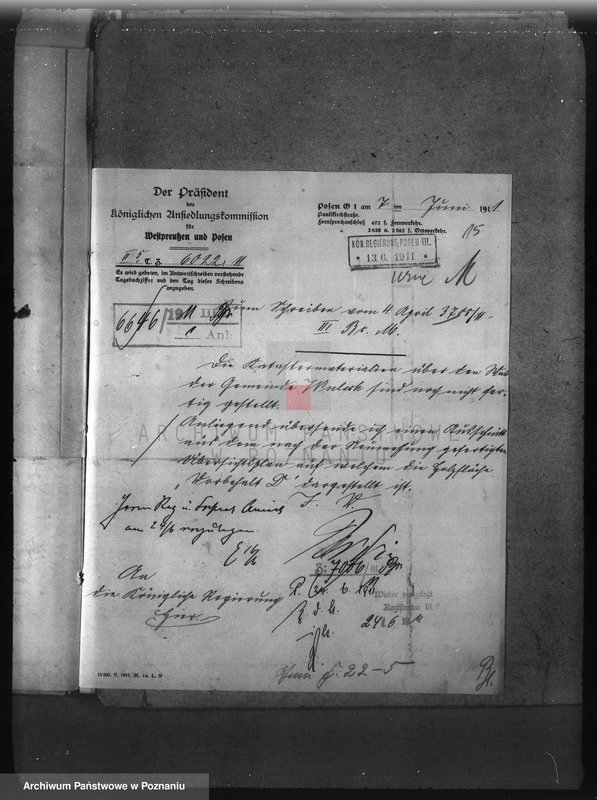 Der Präsident
der
Königlichen Ansiedlungskommission
für
Westpreußen und Posen
T. Z. 6022. 11
Es wird gebeten, im Antwortschreiben vorstehende
Tagebuchziffer und den Tag dieses Schreibens
anzugeben.
Posen O 1 am 7 ten Juni 1911
Paulikirchstraße.
Fernsprechanschluß 472 f. Fernverkehr.
2029 u. 2582 f. Ortsverkehr.
KÖN. REGIERUNG, POSEN III.
* 13. 6. 1911 *
M
6646/ 1911 III
Anl.
Zum Schreiben vom 4. April 3705/11
III Br. M.
Die Katastermaterialien über den Wald
der Gemeinde sind noch nicht fer-
tig gestellt.
Anliegend übersende ich einen Ausschnitt
aus dem nach der Neumessung gefertigten
Übersichtsplan auf welchem die Holzfläche
„Vorbehalt D" dargestellt ist.
I. V.
Herrn Reg u. Forstrat
am 24/6 vorzulegen
An
die Königliche Regierung
Hier
Z: 7056/III
Wieder vorgelegt
Registratur III.
24 6 11
22-5
15 000. V. 1911. St. 1a. L. N
ARCHIWUM PAŃSTWOWE
W POZNANIU
Archiwum Państwowe w Poznaniu